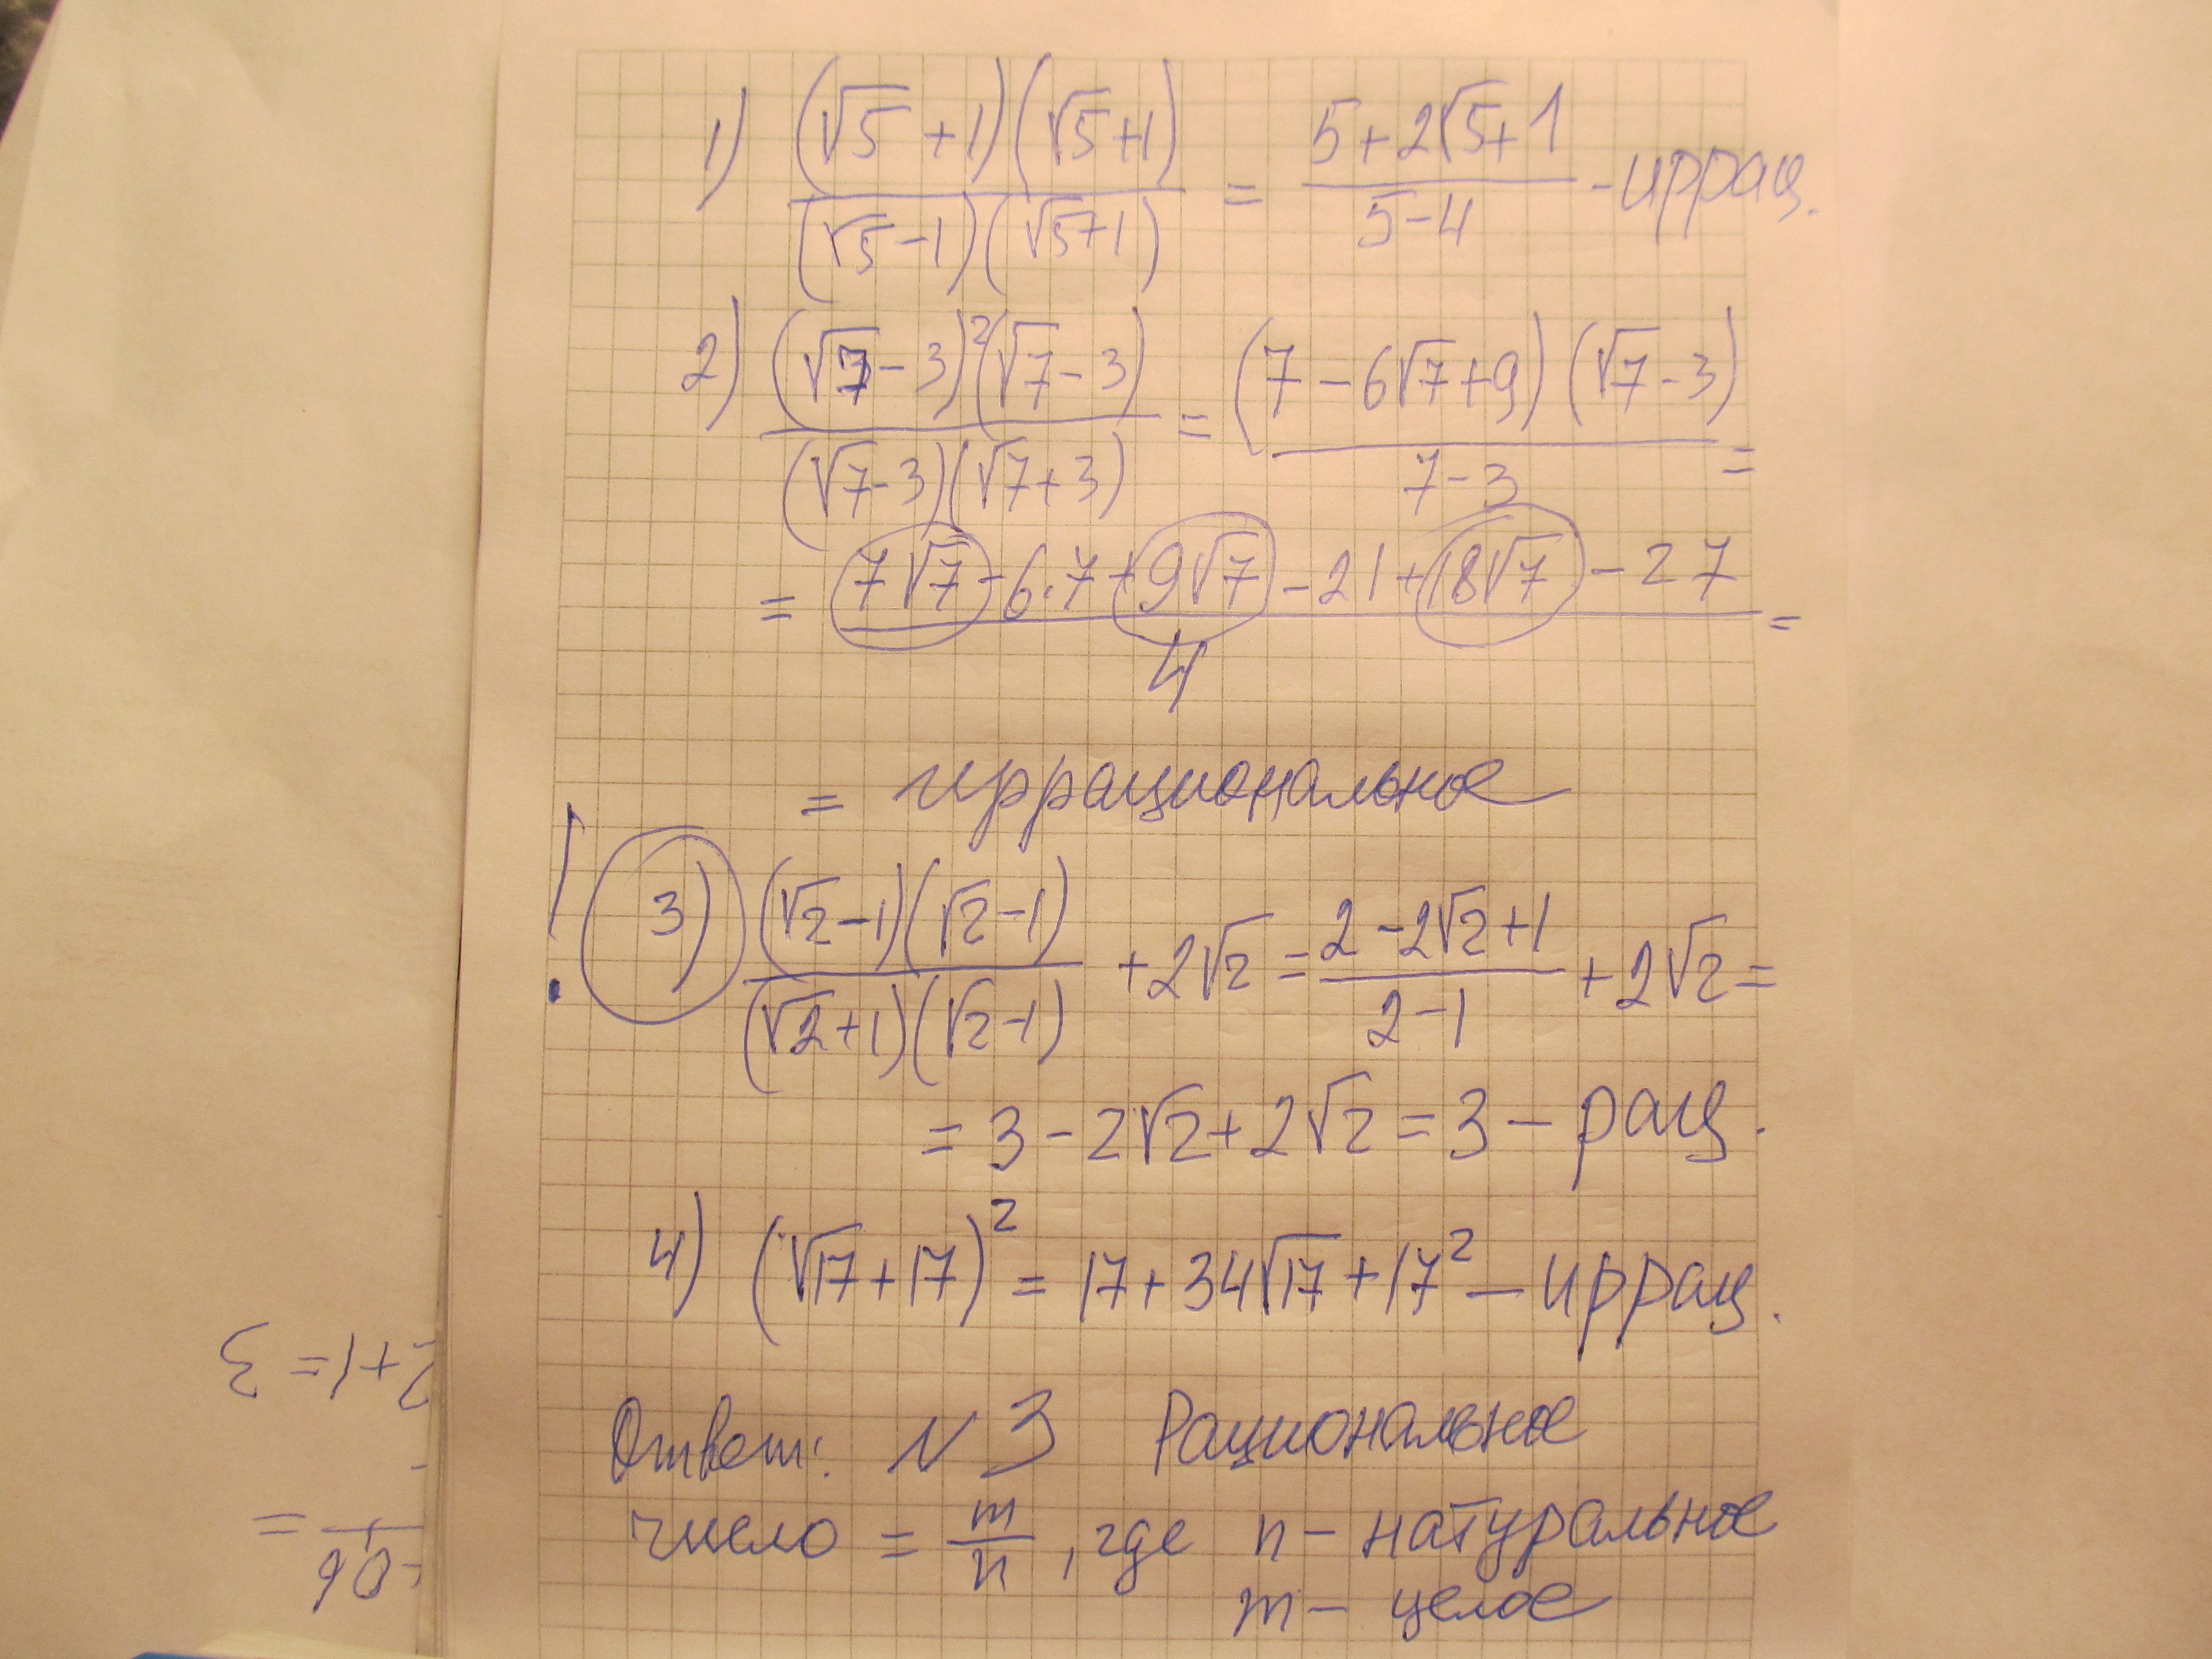 1) (√5 + 1)(√5 + 1) / (√5 - 1)(√5 + 1) = 5 + 2√5 + 1 / 5 - 4 - иррац.
2) (√7 - 3)²(√7 - 3) / (√7 - 3)(√7 + 3) = (7 - 6√7 + 9)(√7 - 3) / 7 - 3 =
= 7√7 - 6·7 + 9√7 - 21 + 18√7 - 27 / 4 =
= иррациональное
! 3) (√2 - 1)(√2 - 1) / (√2 + 1)(√2 - 1) + 2√2 = 2 - 2√2 + 1 / 2 - 1 + 2√2 =
= 3 - 2√2 + 2√2 = 3 - рац.
4) (√17 + 17)² = 17 + 34√17 + 17² - иррац.
Ответ: N 3 Рациональное
число = m / n, где n - натуральное
m - целое
2+1=3